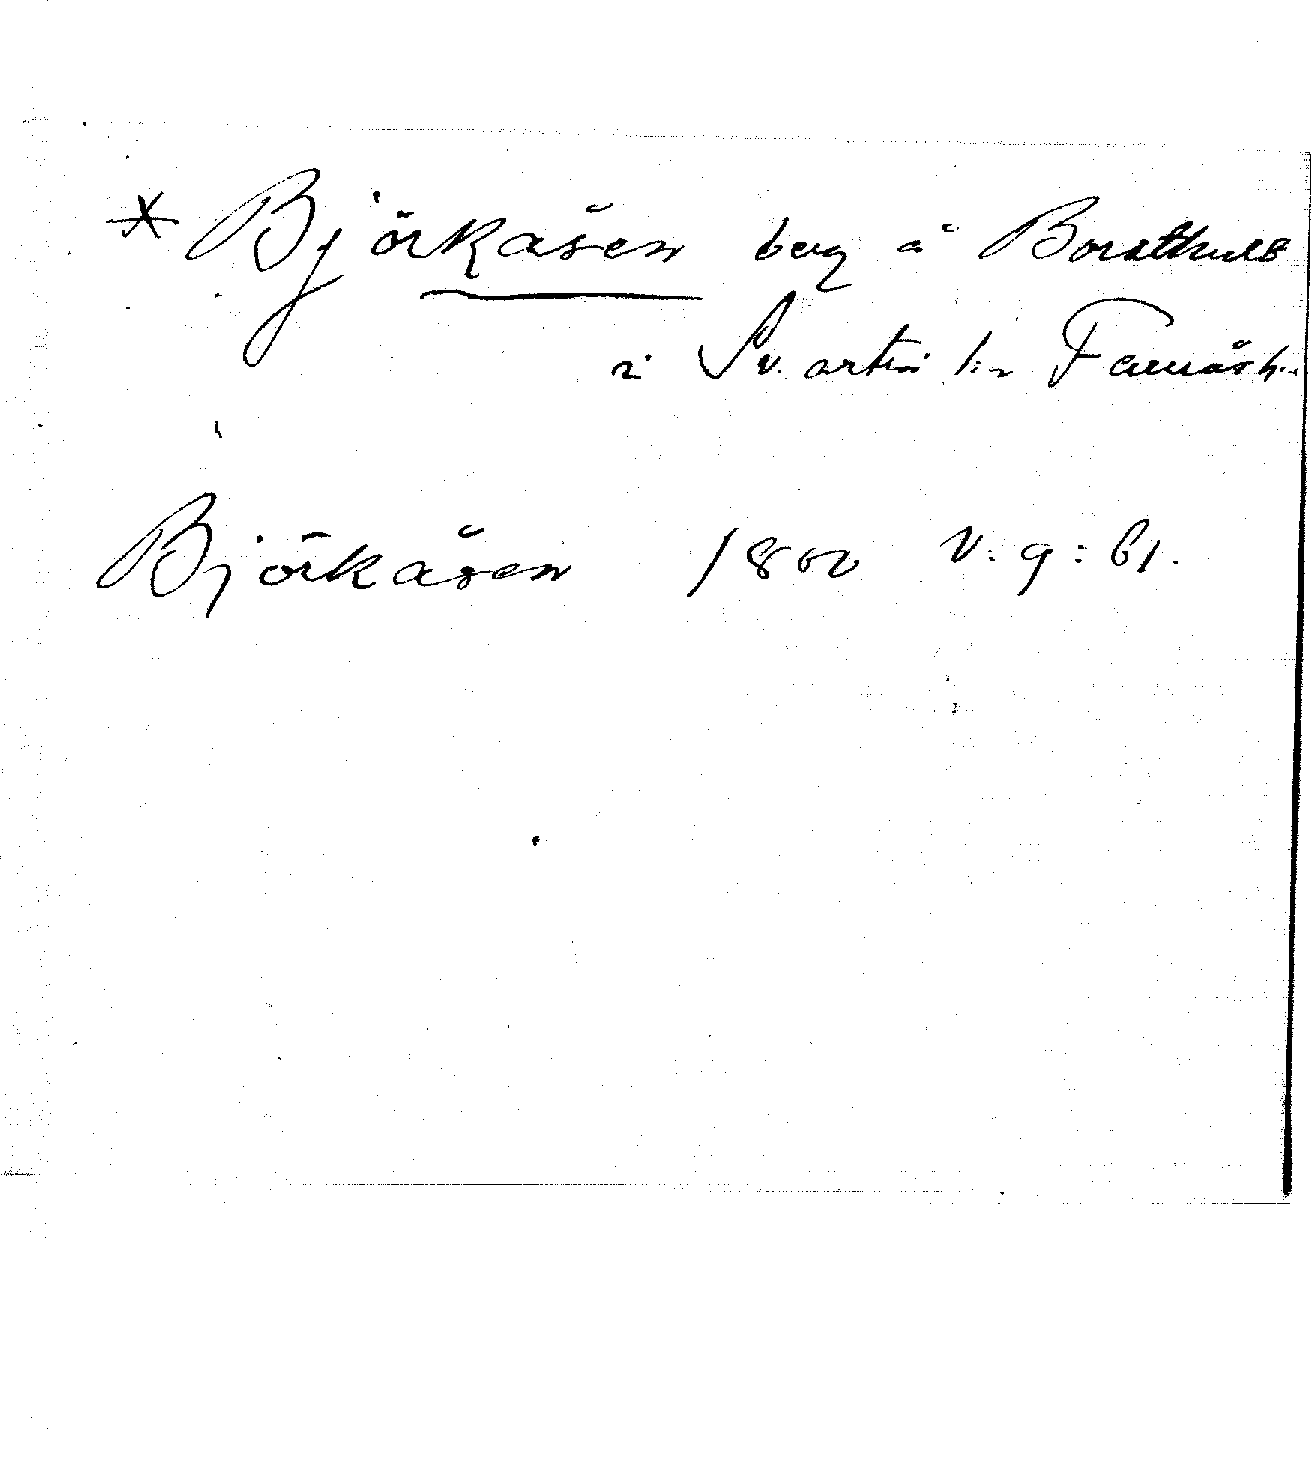 * Björkåsen berg å Borathult
i Svartrå sn Fauråsh.
Björkåsen 1802 V: 9: 61.